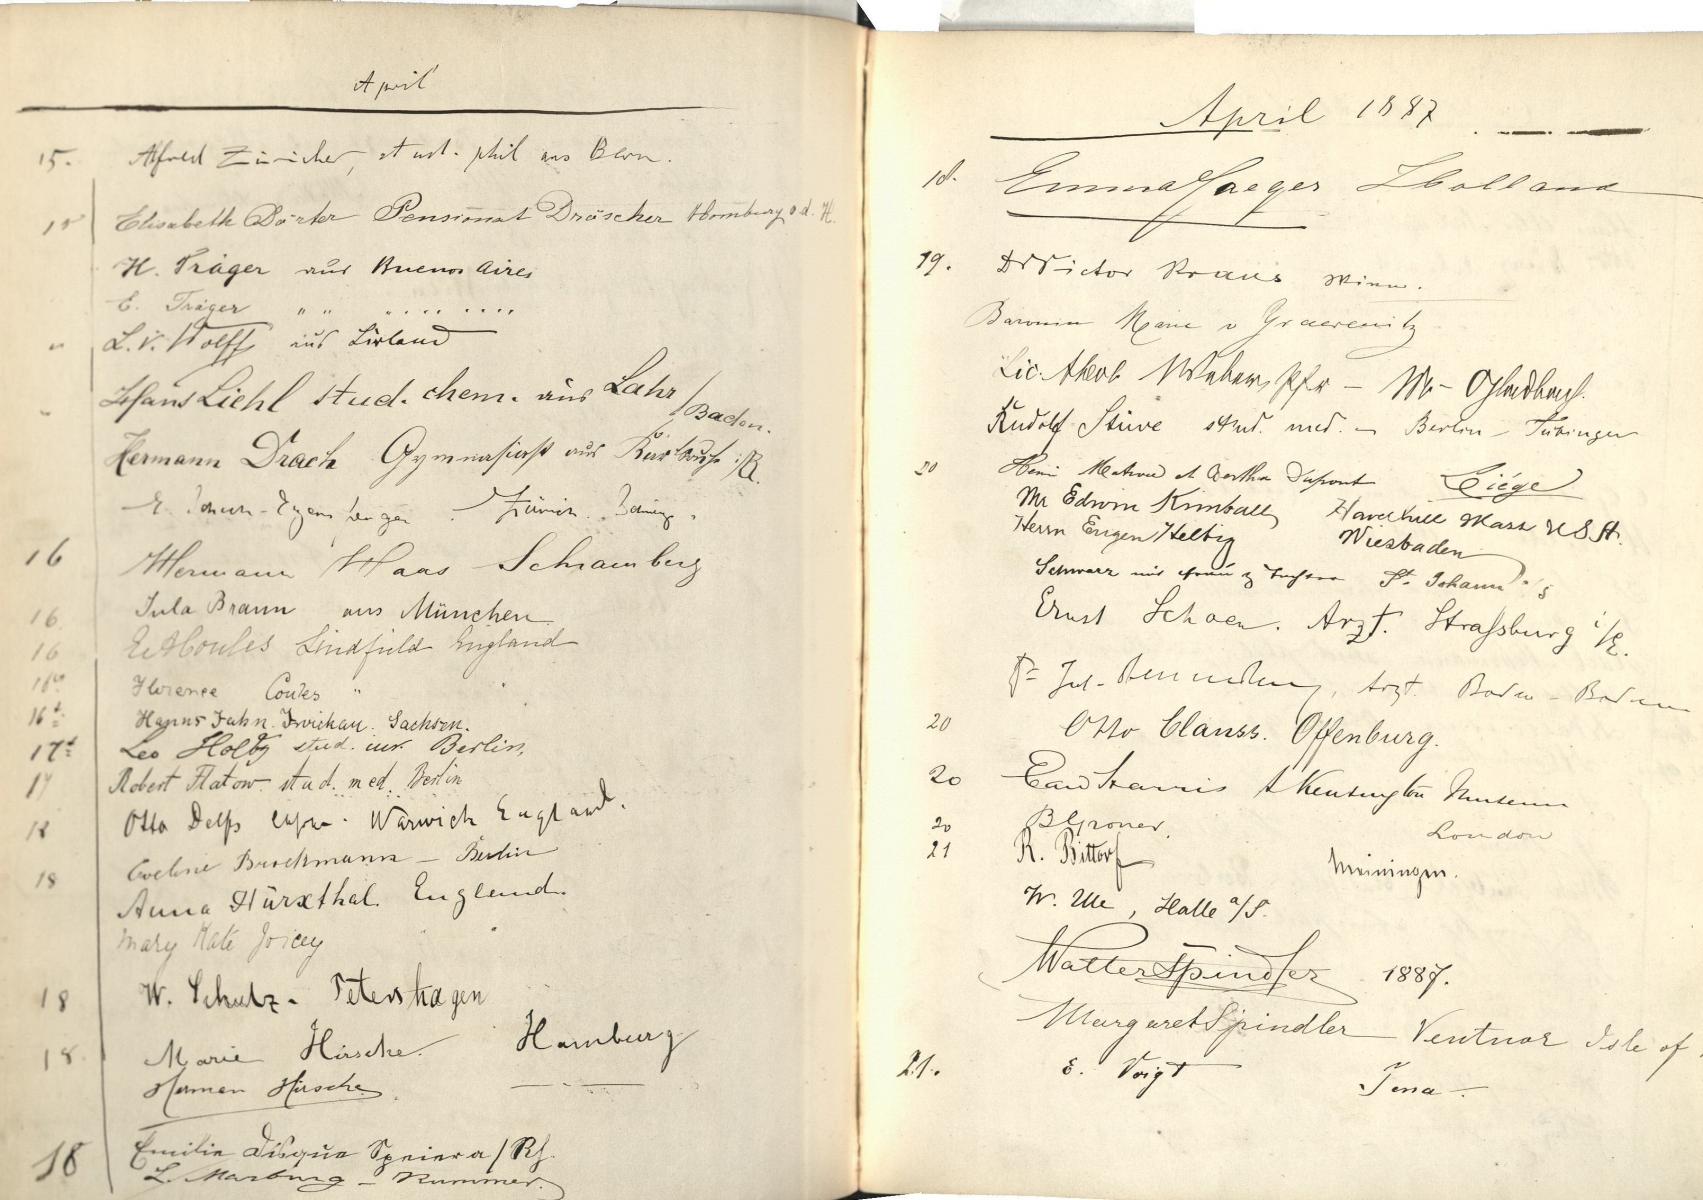 April
15. Alfred Züricher, stud. phil aus Bern.
15 Elisabeth Dörter Pensionat Dräscher Homburg v. d. H.
H. Träger aus Buenos Aires
E. Träger " " " .... ....
" L. v. Wolff aus Livland
" Hans Liehl stud. chem. aus Lahr / Baden.
Hermann Drach Gymnasiast aus Karlsruhe i/B.
E. Zürich
16 Hermann Haas Schramberg
16. Jula Braun aus München
16 Lindfield England
16 Florence Coules "
16t. Hanns Jahn. Zwickau. Sachsen.
17t Leo Holtz stud. iur. Berlin.
17 Robert Flatow stud. med. Berlin
18 Otto Delfs Warwick England.
Eveline Brockmann – Berlin
18 Anna Hürxthal. England.
Mary Kate Joicey " "
18 W. Schulz - Petershagen
18. Marie Hirsche. Hamburg
Herman Hirsche — —
18 Emilie Disqué Speier a/Rh.
L. Marburg – Kummer.
April 1887
18. Emma Jaeger Holland
19. Dr Victor Kraus Wien.
Baronin Marie v Graevenitz
Lic. Weber, Pfr – M – Gladbach.
Rudolf Stüve stud. med. – Berlin – Tübingen
20 Henri et Bertha Dupont Liége
Mr Edwin Kimball Haverhill Mass U.S.A.
Herrn Eugen Helbig Wiesbaden
Schwarz mit Frau & Tochter St. Johann a/S
Ernst Schoen. Arzt. Straßburg i/E.
Dr Jul. Arzt. Baden-Baden
20 Otto Clauss. Offenburg.
20 Harris S Kensington Museum
20 B Groner. London
21 R. Bittorf Meiningen.
W. Ule, Halle a/S.
Walter Spindler 1887.
Margaret Spindler Ventnor Isle of
21. E. Voigt Jena.